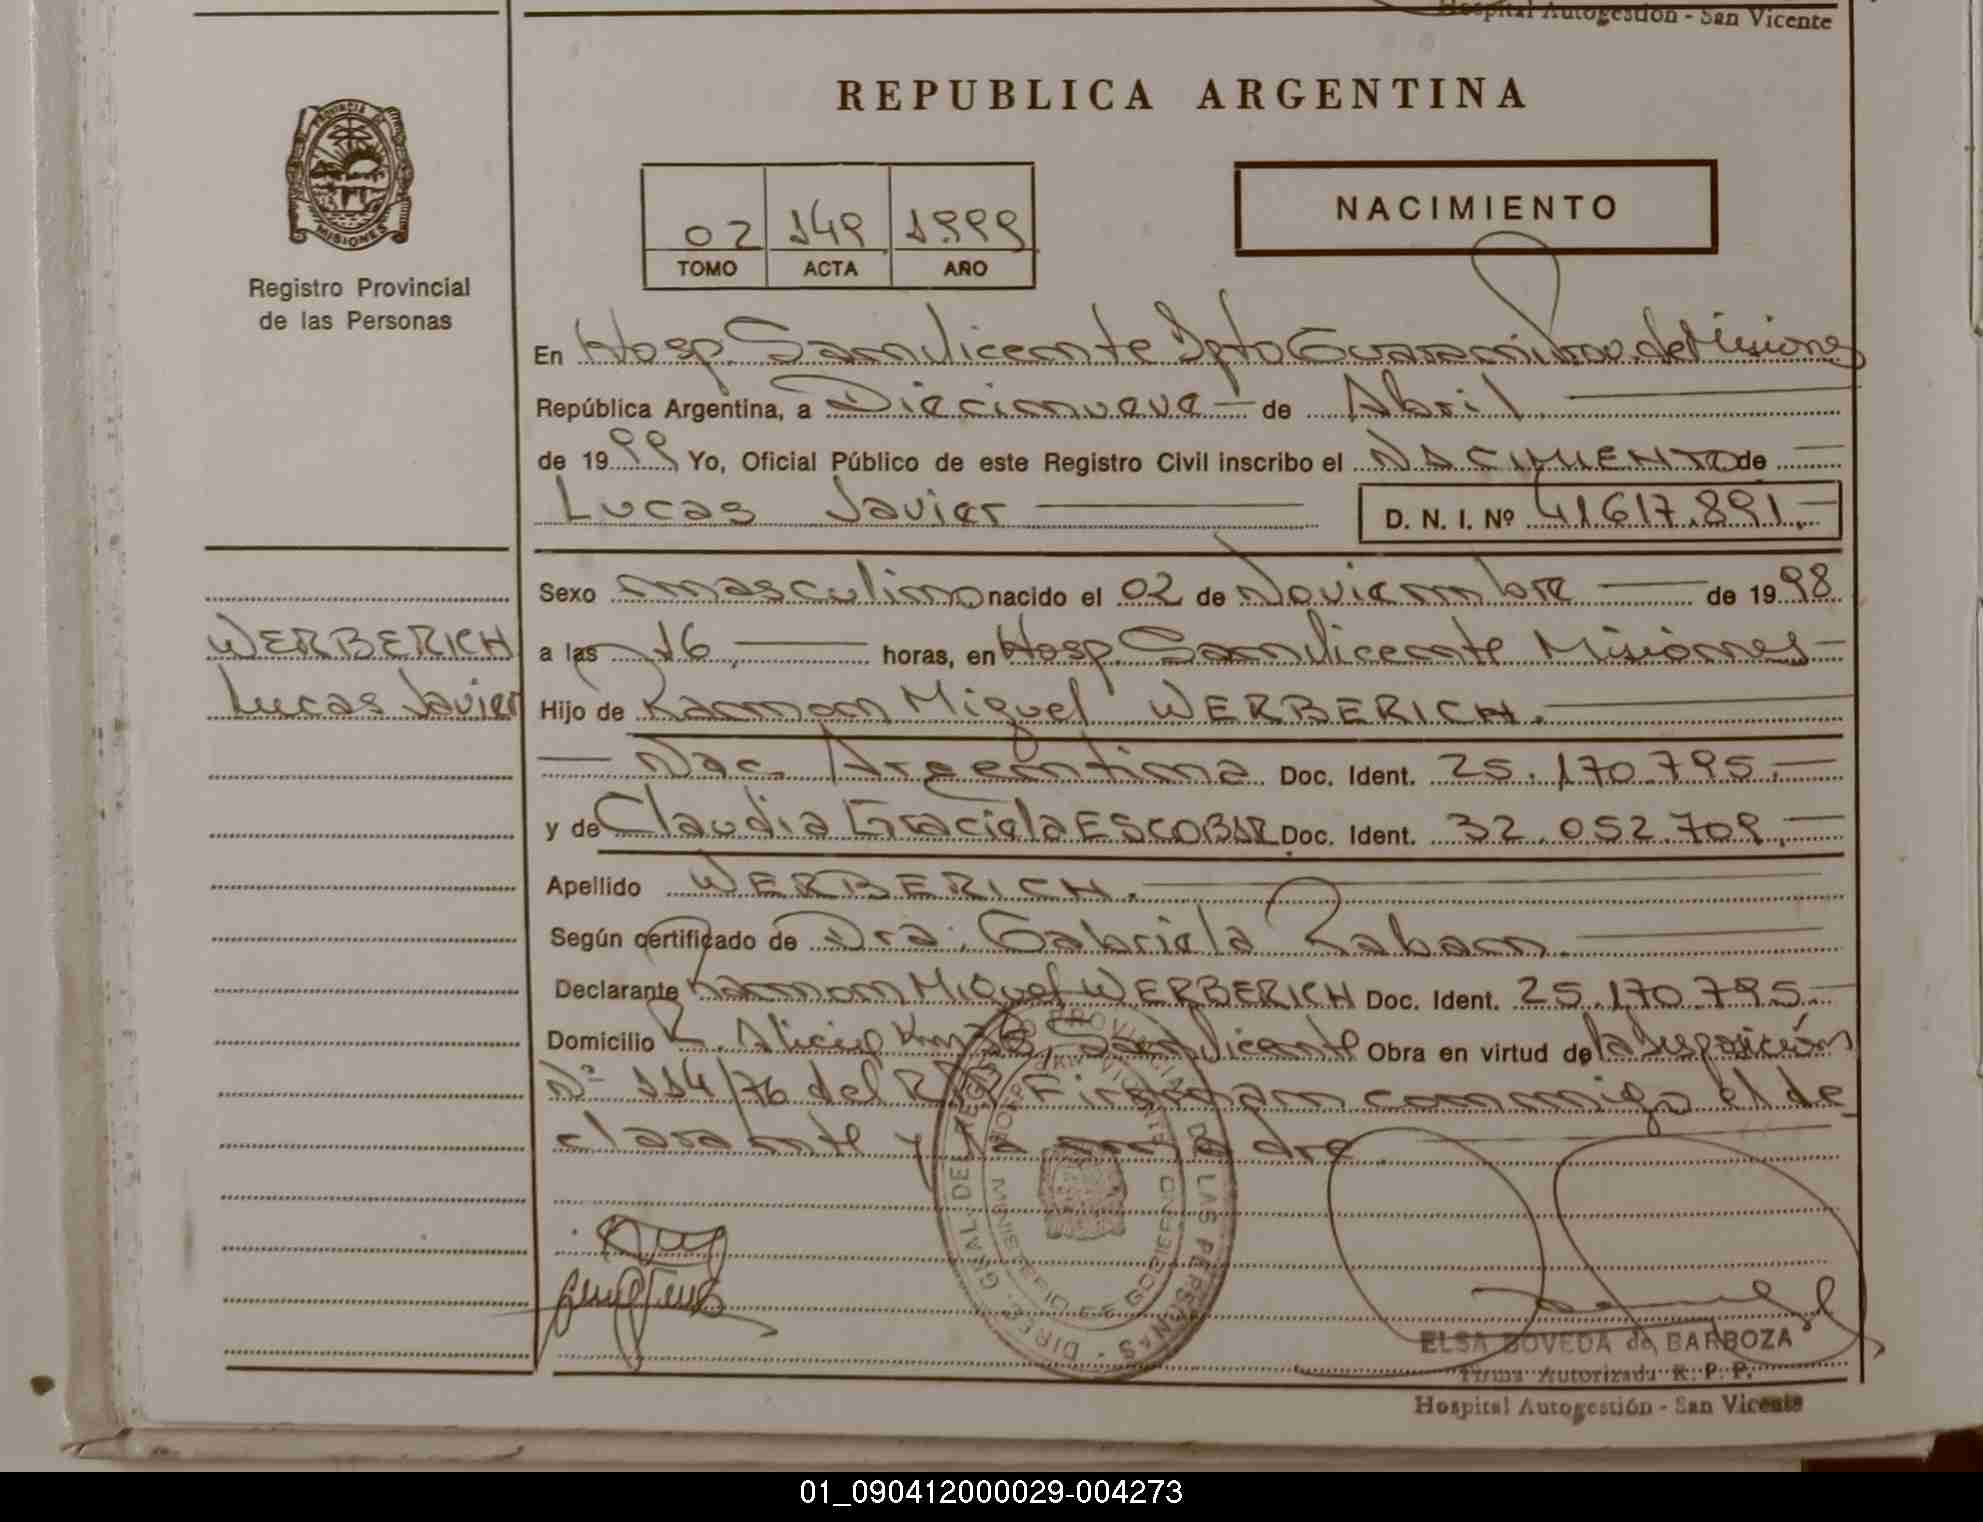 Hospital Autogestión - San Vicente
REPUBLICA ARGENTINA
PROVINCIA DE
MISIONES
Registro Provincial
de las Personas
02 149 1999
TOMO ACTA AÑO
NACIMIENTO
En Hosp. San Vicente Dpto Guaraní Prov. de Misiones
República Argentina, a Diecinueve de Abril
de 1999 Yo, Oficial Público de este Registro Civil inscribo el NACIMIENTO de
Lucas Javier D. N. I. Nº 41.617.891.-
Sexo masculino nacido el 02 de Noviembre de 1998
WERBERICH
Lucas Javier
a las 16, horas, en Hosp. San Vicente Misiones
Hijo de Ramon Miguel WERBERICH.
Nac. Argentina Doc. Ident. 25.170.795.
y de Claudia Graciela ESCOBAR Doc. Ident. 32.052.709.
Apellido WERBERICH.
Según certificado de Dra. Gabriela Raban.
Declarante Ramon Miguel WERBERICH Doc. Ident. 25.170.795.
Domicilio San Vicente Obra en virtud de la disposición
Nº 114/76 del RPP Firman conmigo el de
clarante y la madre
DIREC. GRAL. DEL REGISTRO PROVINCIAL DE LAS PERSONAS
HOSP. SAN VICENTE
MINISTERIO DE GOBIERNO
ELSA BOVEDA de BARBOZA
Firma Autorizada R. P. P.
Hospital Autogestión - San Vicente
01_090412000029-004273